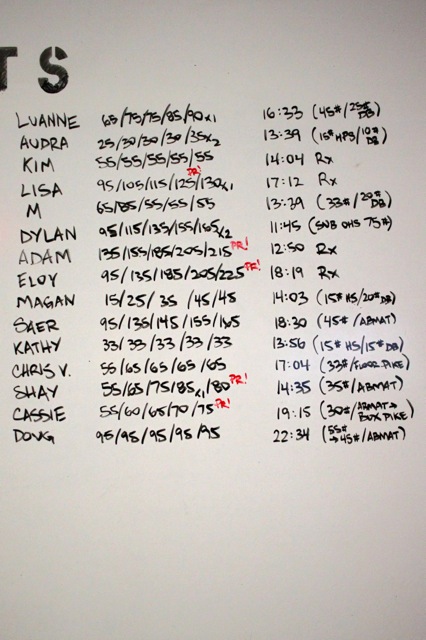 TS
LUANNE 65/75/75/85/90x1 16:33 (45#/25# DB)
AUDRA 25/30/30/30/35x2 13:39 (15# HPS/10# DB)
KIM 55/55/55/55/55 14:04 Rx
LISA 95/105/115/125/130x1 PR! 17:12 Rx
M 65/85/55/55/55 13:29 (33#/20# DB)
DYLAN 95/115/135/155/165x2 11:45 (SUB OHS 75#)
ADAM 135/155/185/205/215 PR! 12:50 Rx
ELOY 95/135/185/205/225 PR! 18:19 Rx
MAGAN 15/25/35/45/45 14:03 (15# HS/20# DB)
SAER 95/135/145/155/165 18:30 (45#/ABMAT)
KATHY 33/33/33/33/33 13:56 (15# HS/15# DB)
CHRIS V. 55/65/65/65/65 17:04 (33#/FLOOR PIKE)
SHAY 55/65/75/85x1/80 PR! 14:35 (35#/ABMAT)
CASSIE 55/60/65/70/75 PR! 19:15 (30#/ABMAT→ BOX PIKE)
DOUG 95/95/95/95/95 22:34 (55# →45#/ABMAT)